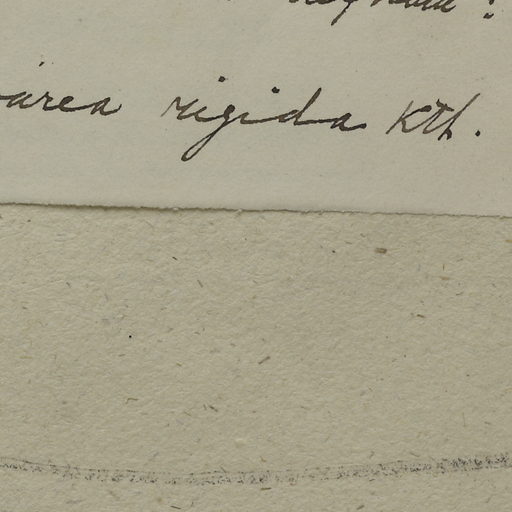 área rigida Kth.